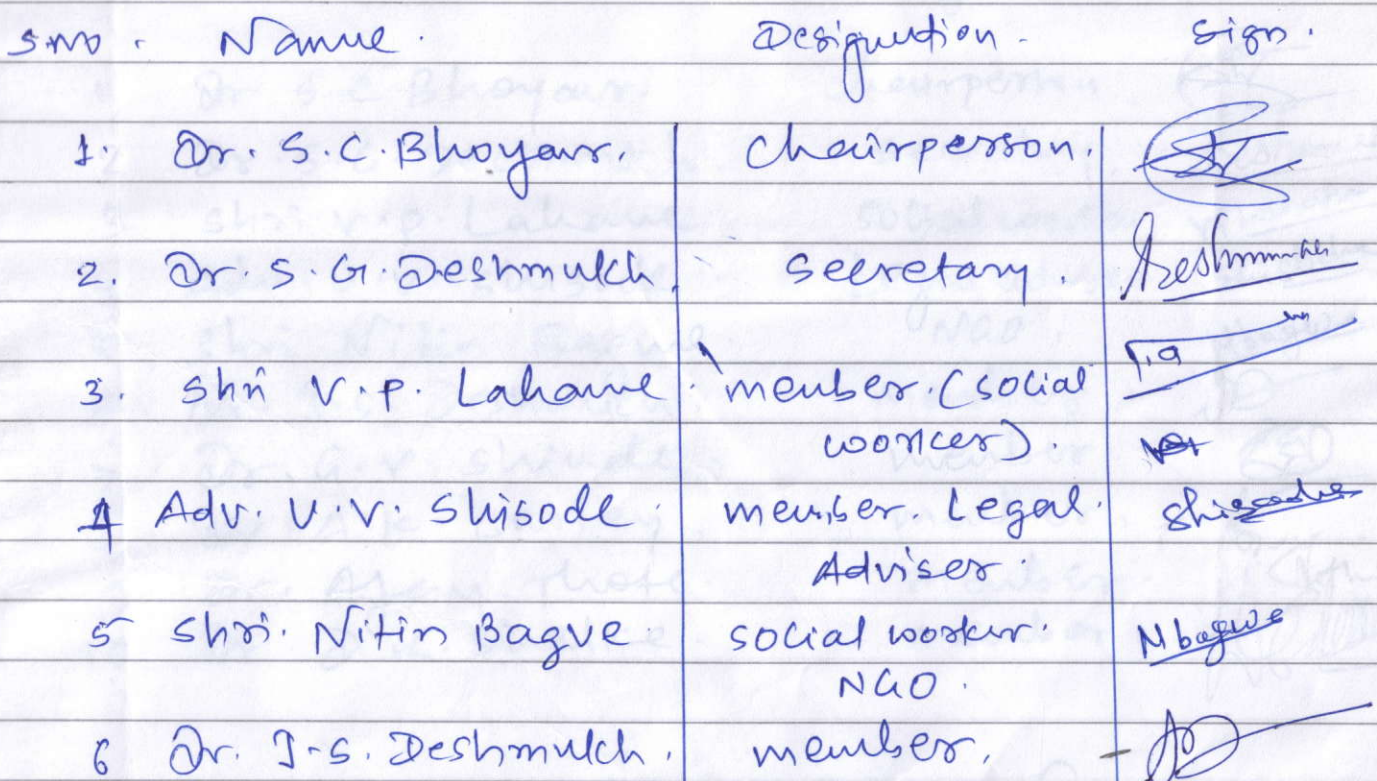 S.no. Name. Designation. Sign.
1. Dr. S.C. Bhoyar. Chairperson.
2. Dr. S.G. Deshmukh. Secretary. Deshmukh
3. Shri V.P. Lahane member (social
worker).
4 Adv. V.V. Shisode. member Legal
Adviser.
5 Shri. Nitin Bagve. social worker
NGO. Nbagve
6 Dr. J.S. Deshmukh. member.